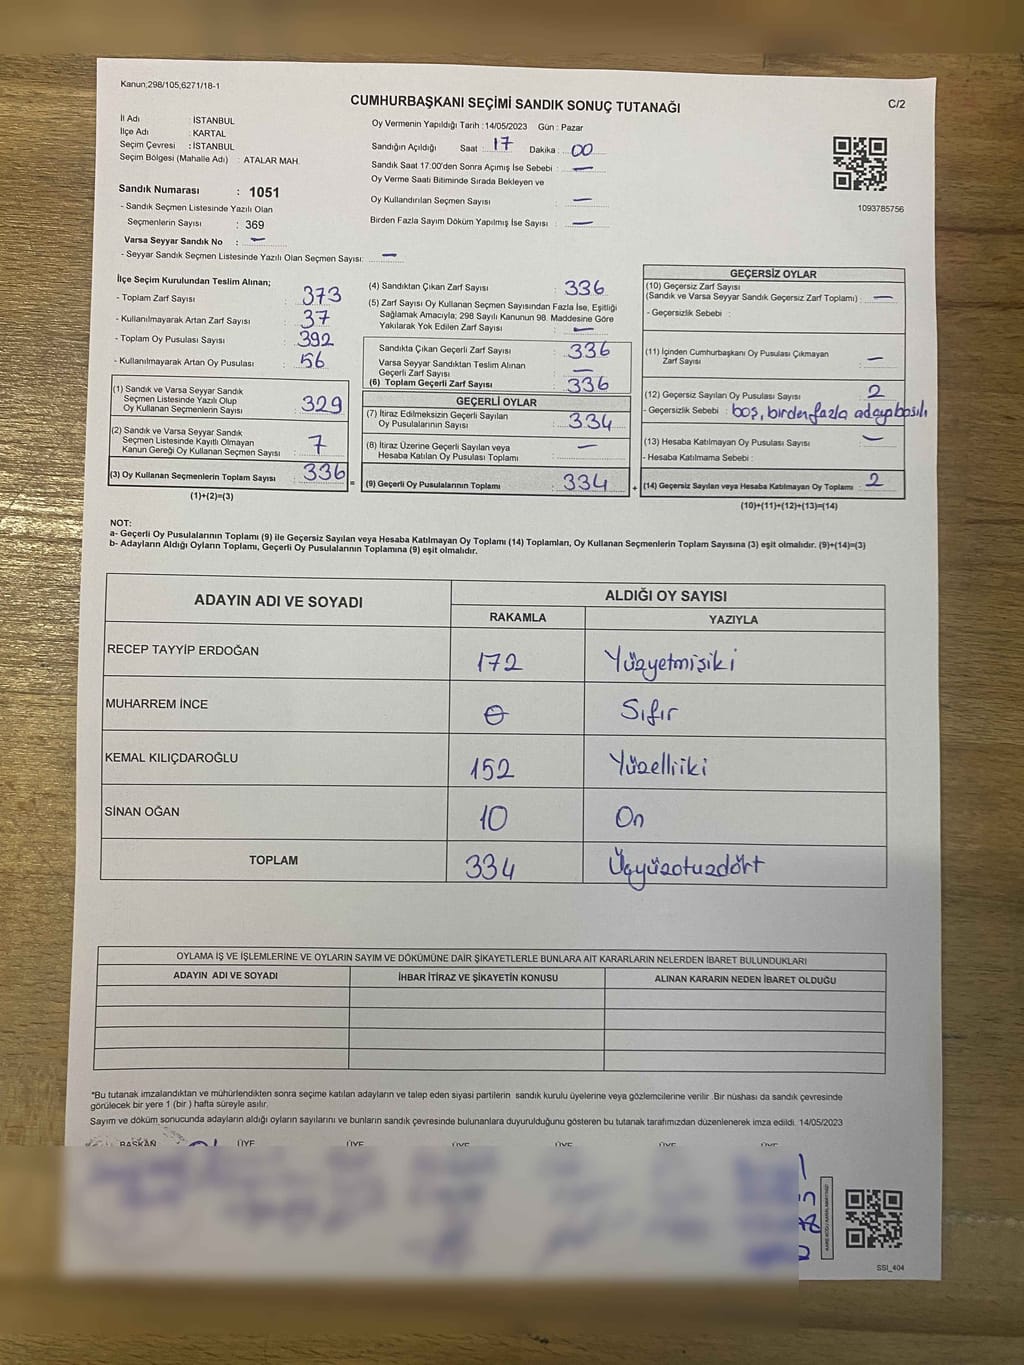 Kanun;298/105,6271/18-1
CUMHURBAŞKANI SEÇİMİ SANDIK SONUÇ TUTANAĞI
C/2
İl Adı : İSTANBUL
İlçe Adı : KARTAL
Seçim Çevresi : İSTANBUL
Seçim Bölgesi (Mahalle Adı) : ATALAR MAH.
Sandık Numarası : 1051
- Sandık Seçmen Listesinde Yazılı Olan
Seçmenlerin Sayısı : 369
Varsa Seyyar Sandık No : —
- Seyyar Sandık Seçmen Listesinde Yazılı Olan Seçmen Sayısı: —
Oy Vermenin Yapıldığı Tarih :14/05/2023 Gün : Pazar
Sandığın Açıldığı Saat : 17 Dakika : 00
Sandık Saat 17:00'den Sonra Açımış İse Sebebi : —
Oy Verme Saati Bitiminde Sırada Bekleyen ve
Oy Kullandırılan Seçmen Sayısı : —
Birden Fazla Sayım Döküm Yapılmış İse Sayısı : —
1093785756
İlçe Seçim Kurulundan Teslim Alınan;
- Toplam Zarf Sayısı : 373
- Kullanılmayarak Artan Zarf Sayısı : 37
- Toplam Oy Pusulası Sayısı : 392
- Kullanılmayarak Artan Oy Pusulası : 56
(1) Sandık ve Varsa Seyyar Sandık
Seçmen Listesinde Yazılı Olup
Oy Kullanan Seçmenlerin Sayısı : 329
(2) Sandık ve Varsa Seyyar Sandık
Seçmen Listesinde Kayıtlı Olmayan
Kanun Gereği Oy Kullanan Seçmen Sayısı : 7
(3) Oy Kullanan Seçmenlerin Toplam Sayısı : 336
(1)+(2)=(3)
=
(4) Sandıktan Çıkan Zarf Sayısı : 336
(5) Zarf Sayısı Oy Kullanan Seçmen Sayısından Fazla İse, Eşitliği
Sağlamak Amacıyla; 298 Sayılı Kanunun 98. Maddesine Göre
Yakılarak Yok Edilen Zarf Sayısı : —
Sandıkta Çıkan Geçerli Zarf Sayısı : 336
Varsa Seyyar Sandıktan Teslim Alınan
Geçerli Zarf Sayısı : —
(6) Toplam Geçerli Zarf Sayısı : 336
GEÇERLİ OYLAR
(7) İtiraz Edilmeksizin Geçerli Sayılan
Oy Pusulalarının Sayısı : 334
(8) İtiraz Üzerine Geçerli Sayılan veya
Hesaba Katılan Oy Pusulası Toplamı : —
(9) Geçerli Oy Pusulalarının Toplamı : 334
+
GEÇERSİZ OYLAR
(10) Geçersiz Zarf Sayısı
(Sandık ve Varsa Seyyar Sandık Geçersiz Zarf Toplamı) : —
- Geçersizlik Sebebi :
(11) İçinden Cumhurbaşkanı Oy Pusulası Çıkmayan
Zarf Sayısı : —
(12) Geçersiz Sayılan Oy Pusulası Sayısı : 2
- Geçersizlik Sebebi : boş, birden fazla adaya basılı
(13) Hesaba Katılmayan Oy Pusulası Sayısı : —
- Hesaba Katılmama Sebebi :
(14) Geçersiz Sayılan veya Hesaba Katılmayan Oy Toplamı : 2
(10)+(11)+(12)+(13)=(14)
NOT:
a- Geçerli Oy Pusulasının Toplamı (9) ile Geçersiz Sayılan veya Hesaba Katılmayan Oy Toplamı (14) Toplamları, Oy Kullanan Seçmenlerin Toplam Sayısına (3) eşit olmalıdır. (9)+(14)=(3)
b- Adayların Aldığı Oyların Toplamı, Geçerli Oy Pusulalarının Toplamına (9) eşit olmalıdır.
ADAYIN ADI VE SOYADI
ALDIĞI OY SAYISI
RAKAMLA YAZIYLA
RECEP TAYYİP ERDOĞAN 172 Yüzyetmişiki
MUHARREM İNCE 0 Sıfır
KEMAL KILIÇDAROĞLU 152 Yüzelliiki
SİNAN OĞAN 10 On
TOPLAM 334 Üçyüzotuzdört
OYLAMA İŞ VE İŞLEMLERİNE VE OYLARIN SAYIM VE DÖKÜMÜNE DAİR ŞİKAYETLERLE BUNLARA AİT KARARLARIN NELERDEN İBARET BULUNDUKLARI
ADAYIN ADI VE SOYADI İHBAR İTİRAZ VE ŞİKAYETİN KONUSU ALINAN KARARIN NEDEN İBARET OLDUĞU
*Bu tutanak imzalandıktan ve mühürlendikten sonra seçime katılan adayların ve talep eden siyasi partilerin sandık kurulu üyelerine veya gözlemcilerine verilir .Bir nüshası da sandık çevresinde
görülecek bir yere 1 (bir ) hafta süreyle asılır.
Sayım ve döküm sonucunda adayların aldığı oyların sayılarını ve bunların sandık çevresinde bulunanlara duyurulduğunu gösteren bu tutanak tarafımızdan düzenlenerek imza edildi. 14/05/2023
BAŞKAN ÜYE ÜYE ÜYE ÜYE ÜYE ÜYE
SSI_404